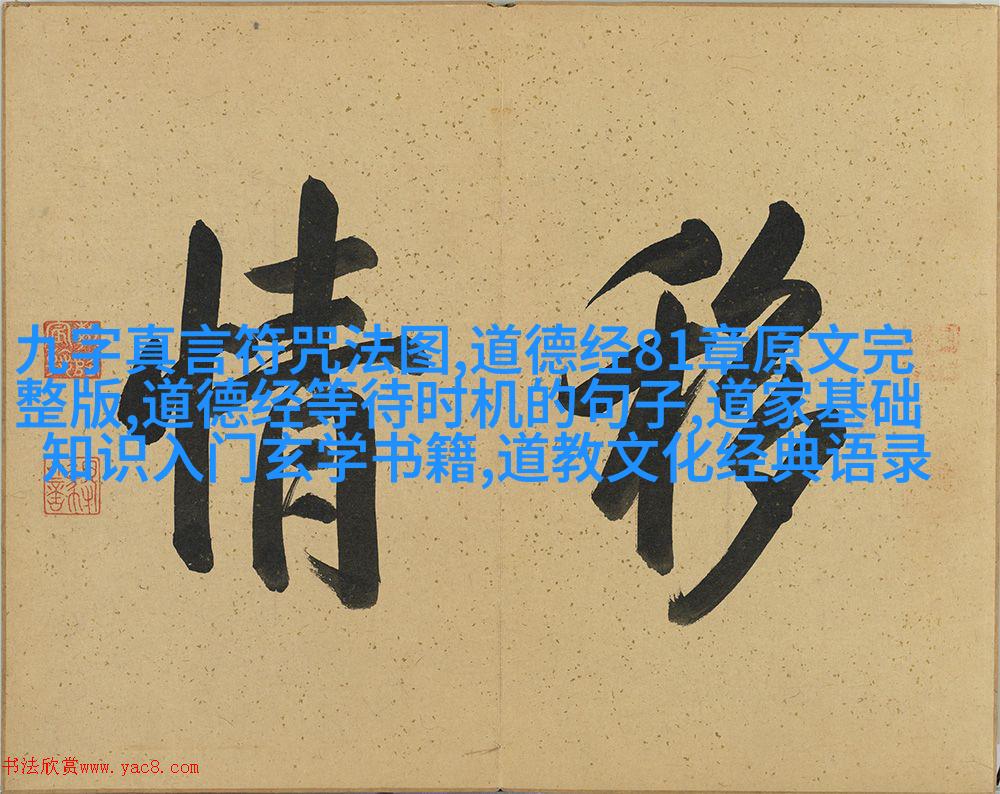 移情
九字真言符咒法图,道德经81章原文完
整版,道德经等待时机的句子,道家基础
知识入门玄学书籍,道教文化经典语录
书法欣赏www.yac8.com